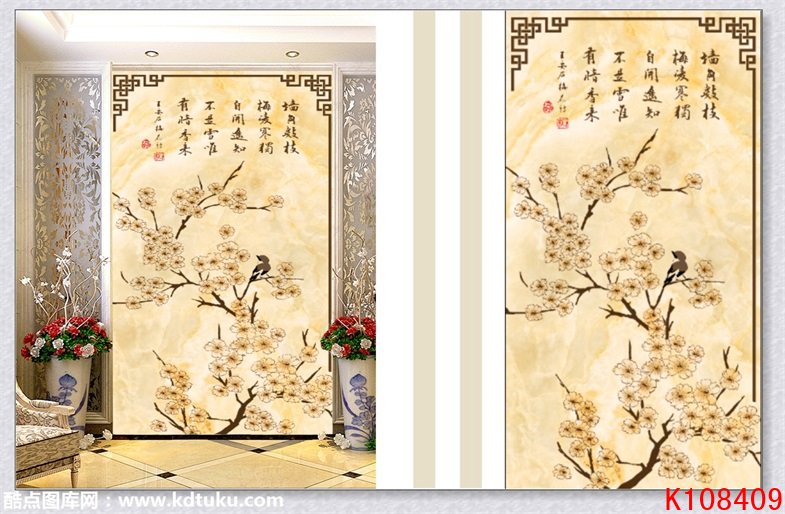 墙角数枝
梅凌寒獨
自開遥知
不是雪唯
有暗香来
王安石梅花诗
墙角数枝
梅凌寒獨
自開遥知
不是雪唯
有暗香来
王安石梅花诗
酷点图库网：www.kdtuku.com
K108409